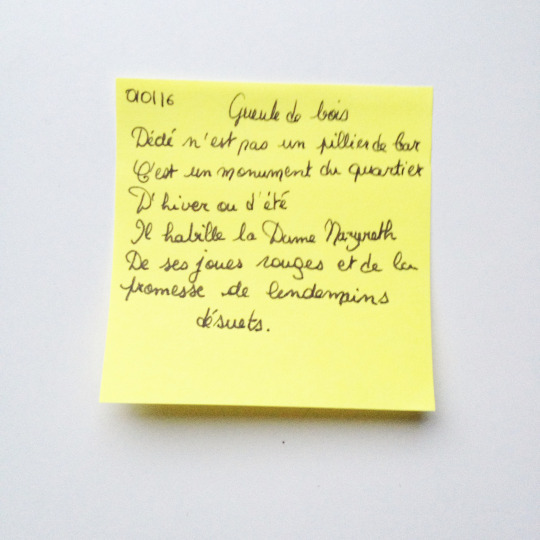 010116
Gueule de bois
Dédé n'est pas un pillier de bar
C'est un monument du quartier
D'hiver ou d'été
Il habille la Dame Nazareth
De ses joues rouges et de la
promesse de lendemains
désuets.